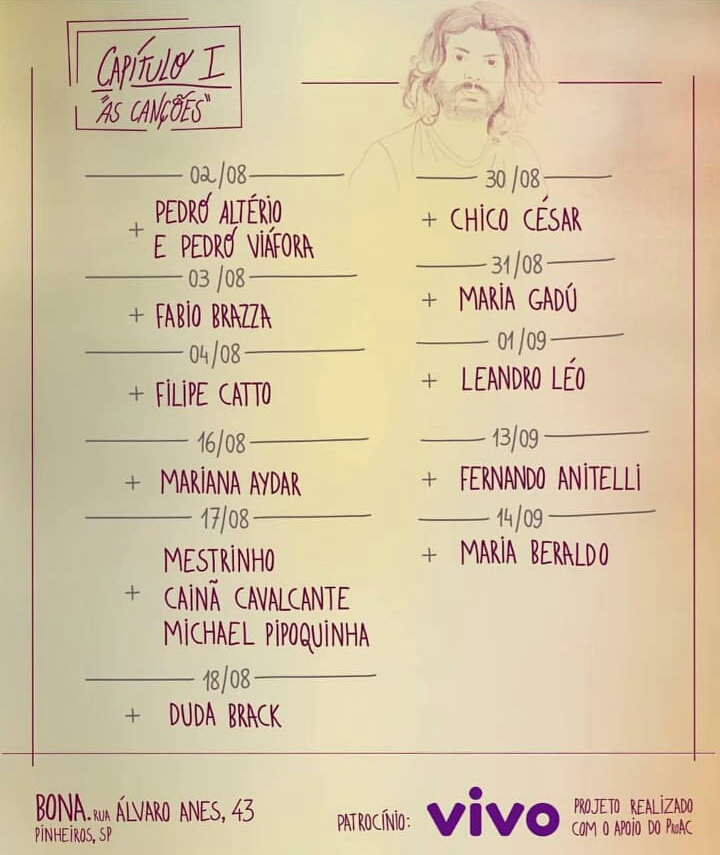 CAPÍTULO I
"AS CANÇÕES"
02/08
+ PEDRO ALTÉRIO
E PEDRO VIÁFORA
03/08
+ FABIO BRAZZA
04/08
+ FILIPE CATTO
16/08
+ MARIANA AYDAR
17/08
MESTRINHO
+ CAINÃ CAVALCANTE
MICHAEL PIPOQUINHA
18/08
+ DUDA BRACK
30/08
+ CHICO CÉSAR
31/08
+ MARIA GADÚ
01/09
+ LEANDRO LÉO
13/09
+ FERNANDO ANITELLI
14/09
+ MARIA BERALDO
BONA. RUA ÁLVARO ANES, 43
PINHEIROS, SP
PATROCÍNIO:
vivo
PROJETO REALIZADO
COM O APOIO DO ProAC